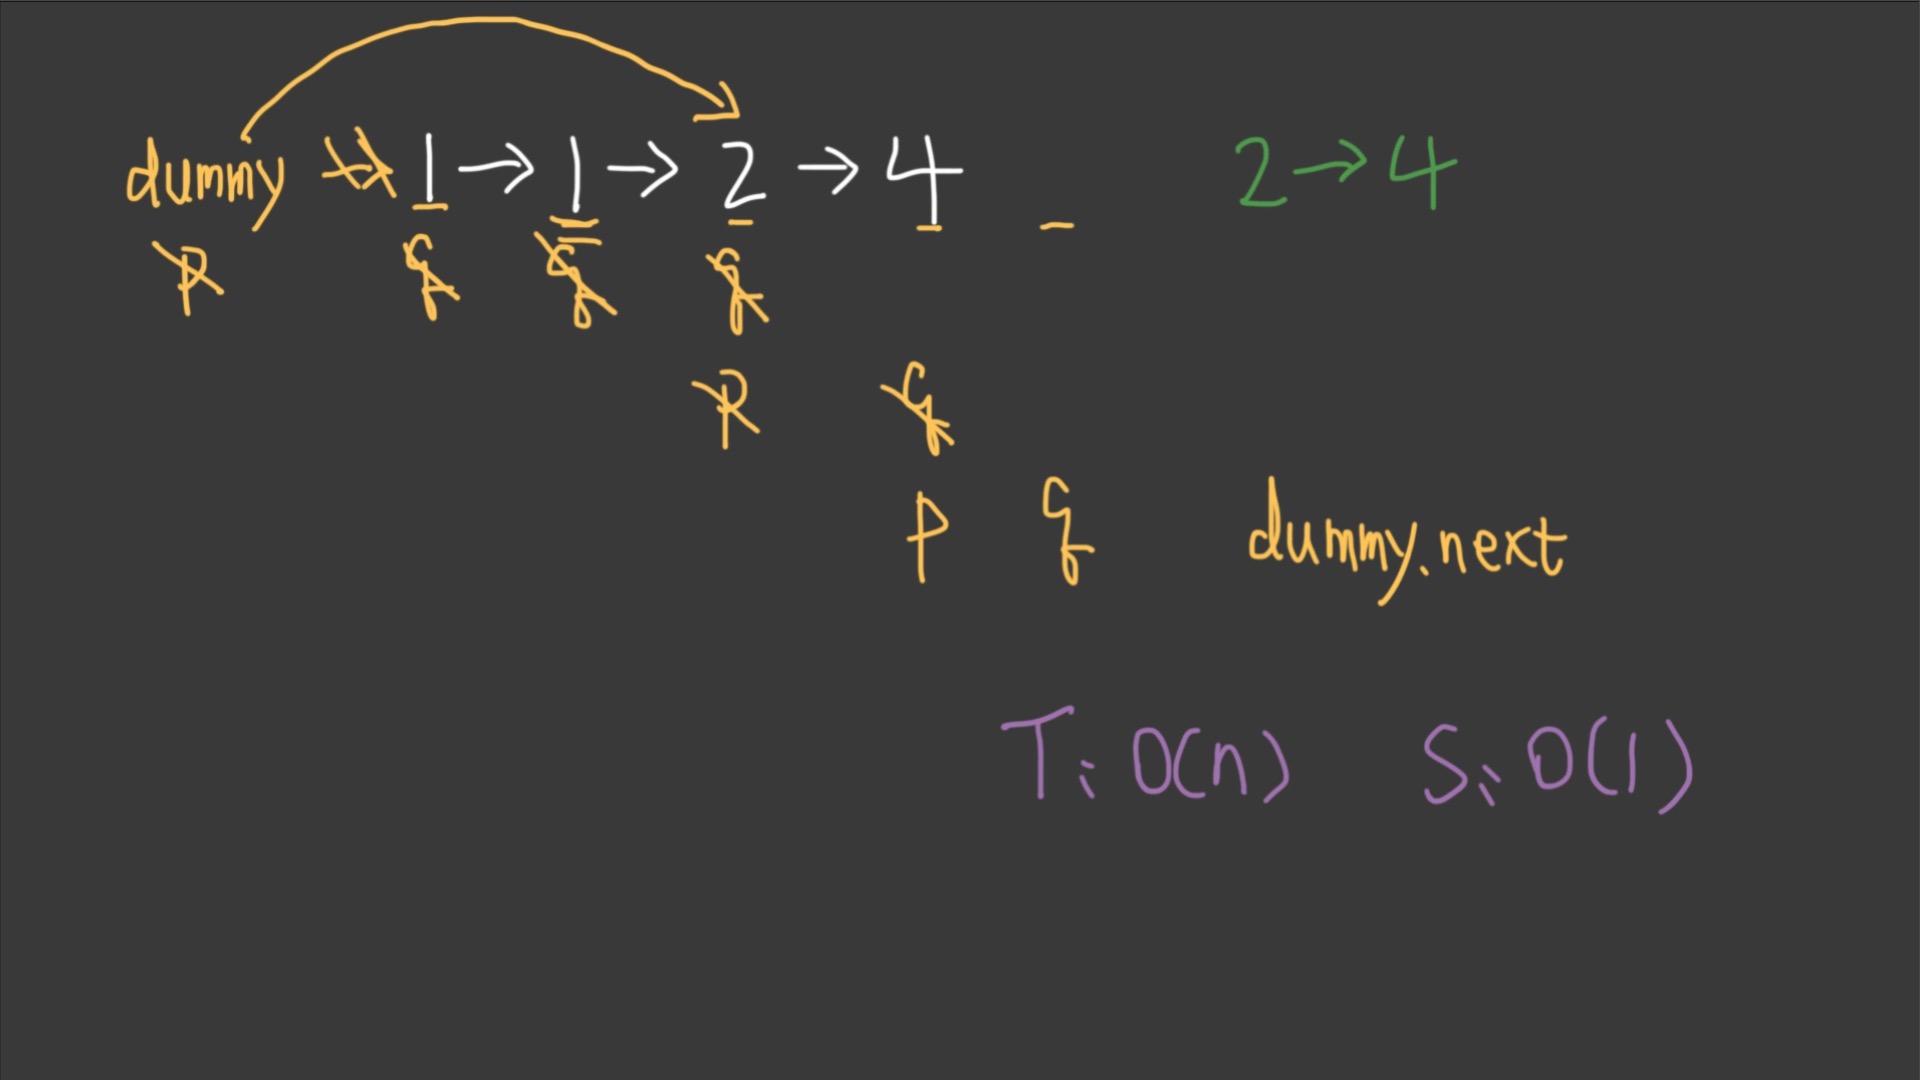 dummy → 1 → 1 → 2 → 4 2 → 4
p q q q
p q
p q dummy.next
T: O(n) S: O(1)